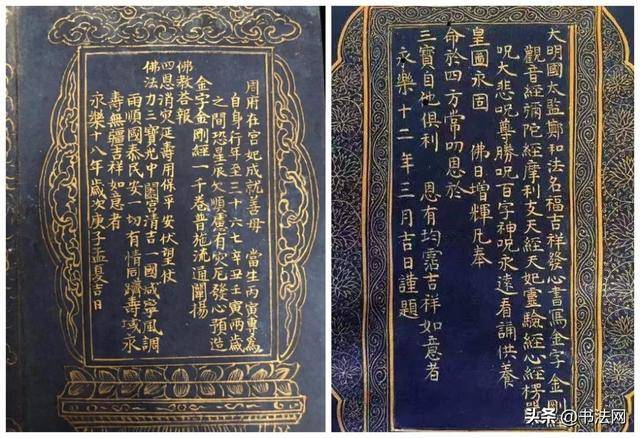 周府在宮妃成就善母 當生丙寅專為
自身行年至三十六七辛丑壬寅兩歲
之間恐星辰欠順廣有灾厄發心預造
金字金剛經一千卷普施流通闡揚
佛教荅報
四恩消灾延壽用保乎安伏望仗
佛法力三寶光中闔宮清吉一國咸寧風調
雨順國泰民安一切有情同躋壽域永
壽無疆吉祥如意者
永樂十八年歲次庚子孟夏吉日
大明國太監鄭和法名福吉祥發心書寫金字金剛
觀音經彌陀經摩利支天經天妃靈驗經心經楞
呪大悲呪尊勝呪百字神呪永遠看誦供養
皇圖永固 佛日增輝凡奉
命於四方常叨恩於
三寶自他俱利 恩有均霑吉祥如意者
永樂十二年三月吉日謹題
头条 @书法网